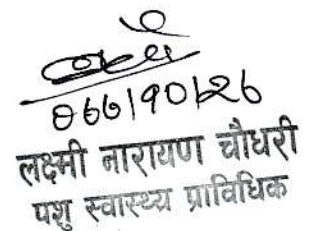 ०६६।१०।२६
लक्ष्मी नारायण चौधरी
पशु स्वास्थ्य प्राविधिक